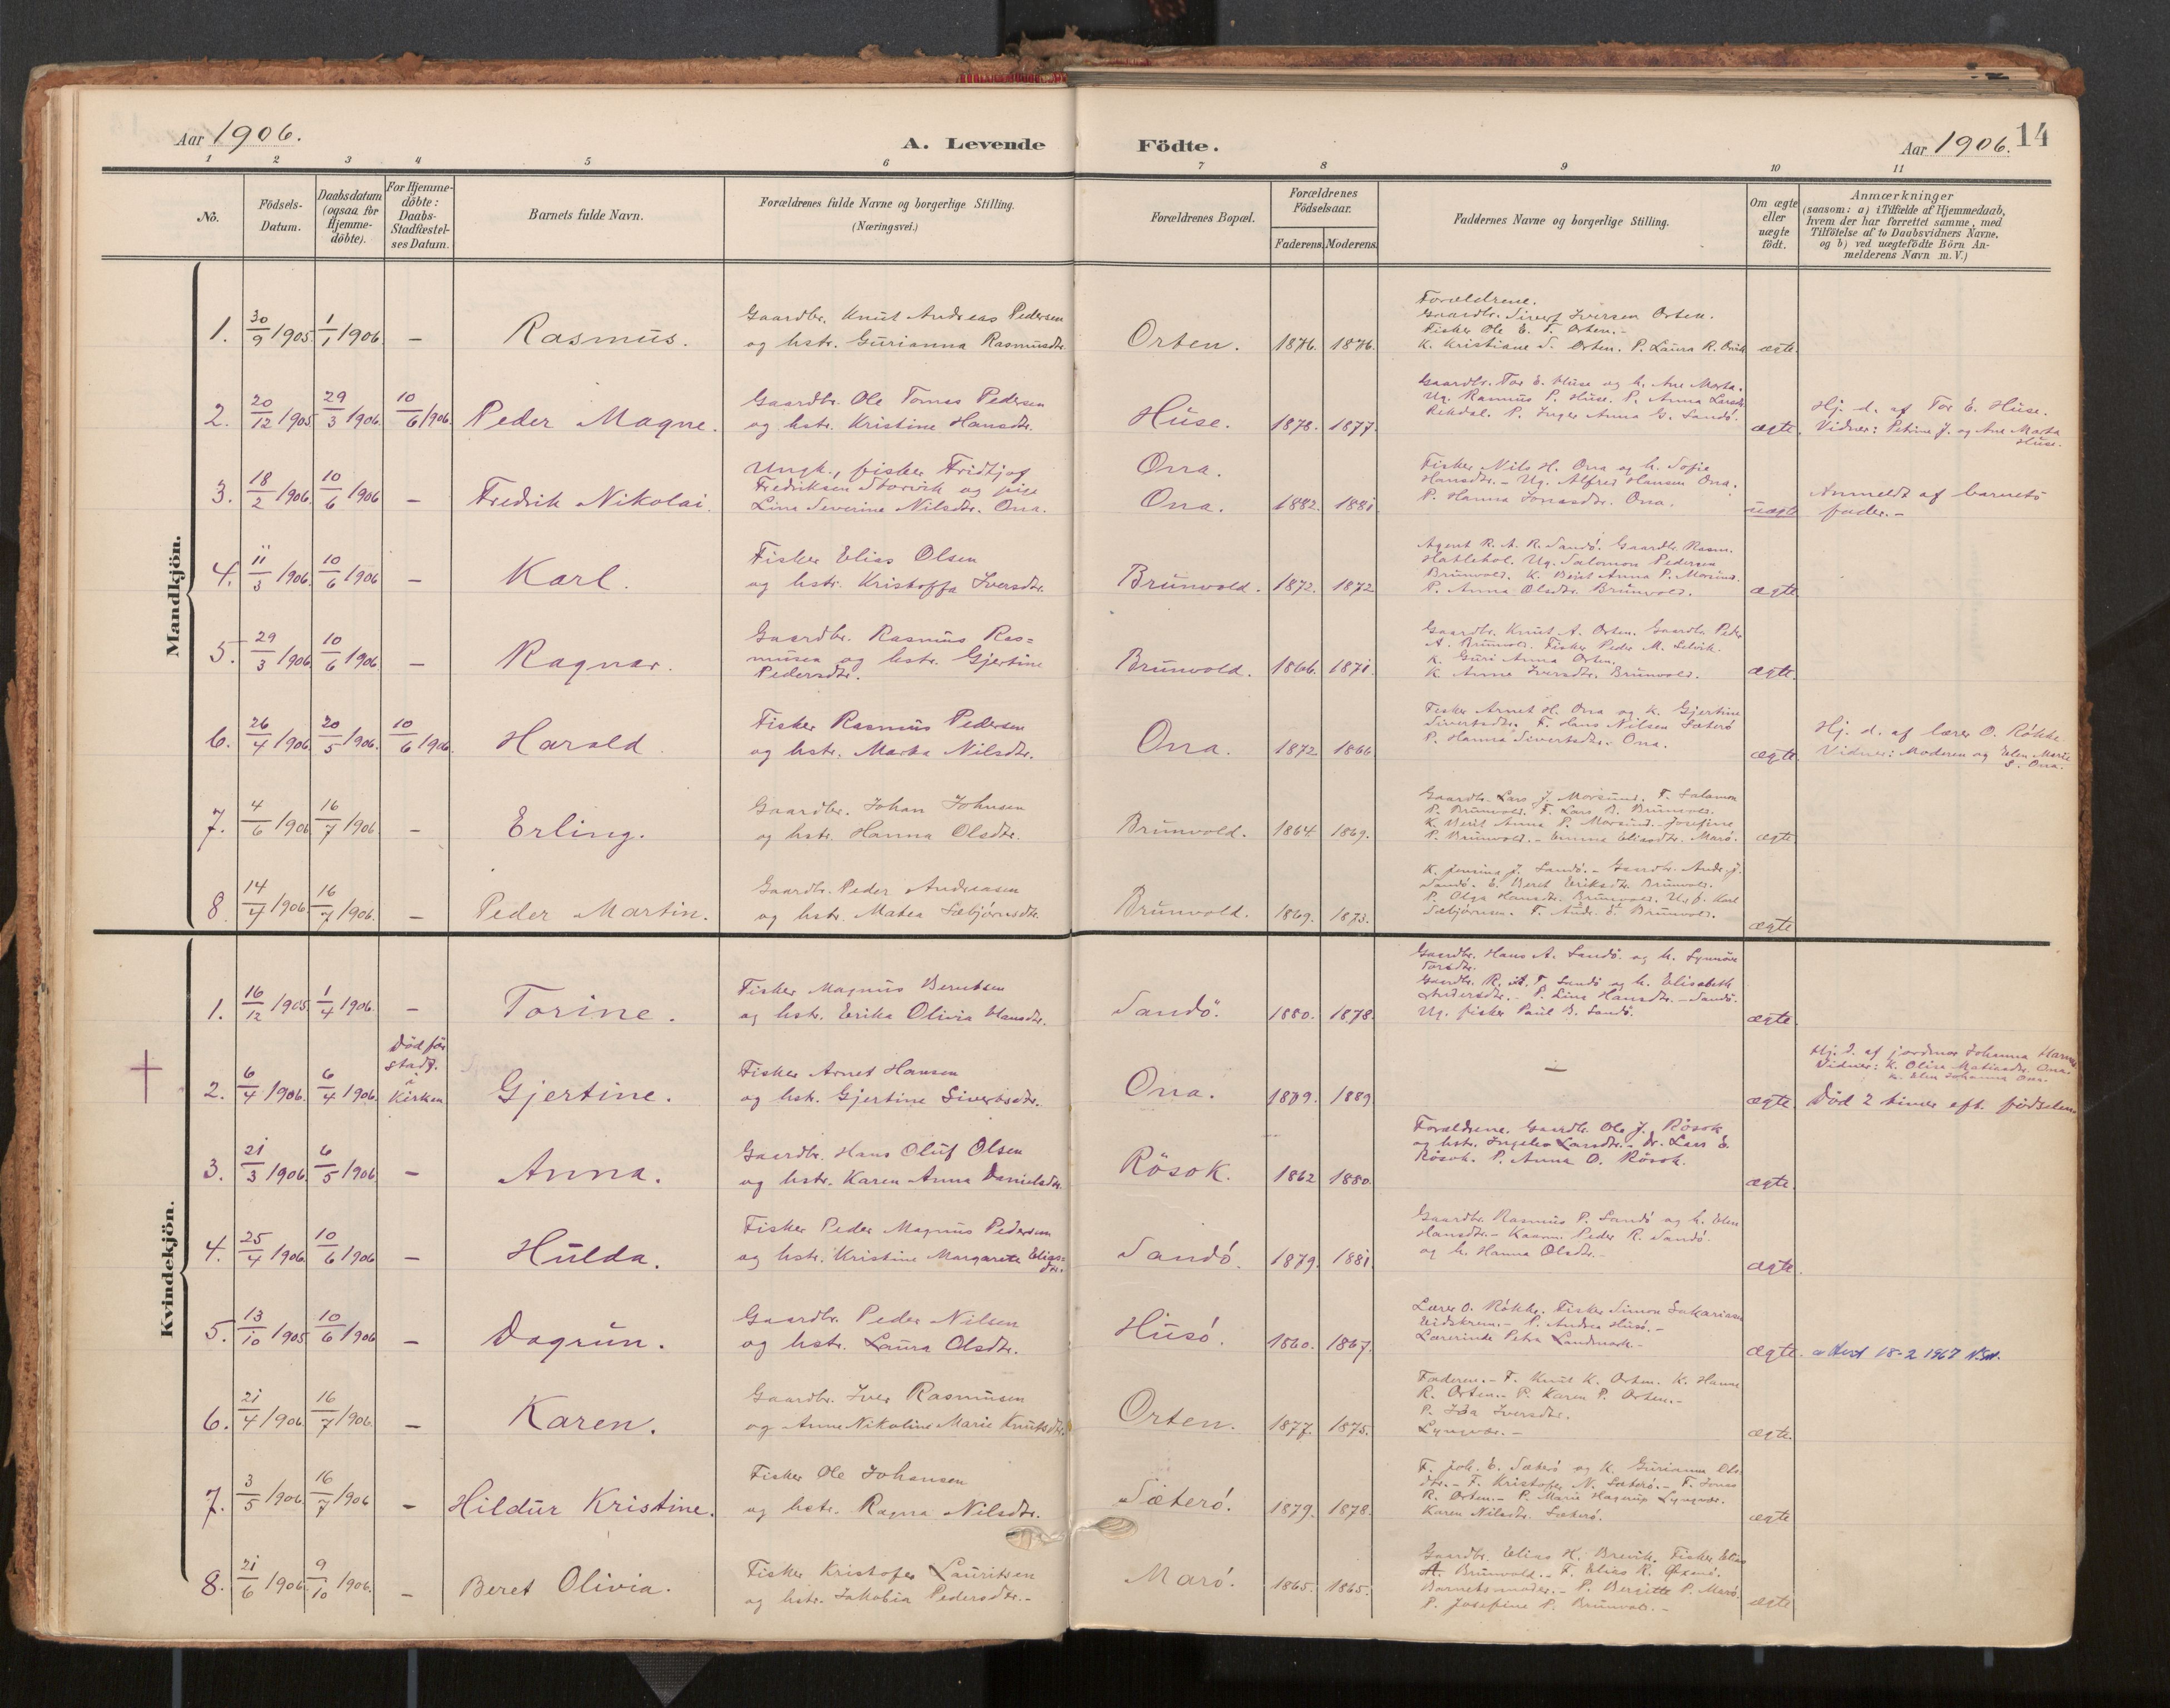 Aar 1906.
A. Levende Födte.
Aar 1906.
14
1 2 3 4 5 6 7 8 9 10 11
No.
Födsels-
Datum.
Daabsdatum
(ogsaa for
Hjemme-
döbte).
For Hjemme-
döbte:
Daabs-
Stadfæstel-
ses Datum.
Barnets fulde Navn.
Forældrenes fulde Navne og borgerlige Stilling.
(Næringsvei.)
Forældrenes Bopæl.
Forældrenes
Födselsaar.
Faderens. Moderens.
Faddernes Navne og borgerlige Stilling.
Om ægte
eller
uægte
födt.
Anmærkninger
(saasom: a) i Tilfælde af Hjemmedaab,
hvem der har forrettet samme, med
Tilföielse af to Daabsvidners Navne,
og b) ved uægtefödte Börn An-
melderens Navn m. V.)
Mandkjön.
1. 30/9 1905. 1/1 1906. – Rasmus.
Gaardbr. Knut Andreas Pedersen
og hstr. Gurianna Rasmusdtr.
Orten. 1876. 1876.
Forældrene.
Gaardbr. Sivert Iversen Orten.
Fisker Ole E. T. Orten.–
K. Kristiane S. Orten. P. Laura R.
ægte.
2. 20/12 1905 29/3 1906. 10/6 1906. Peder Magne.
Gaardbr. Ole Tomas Pedersen
og hstr. Kristine Hansdtr.
Huse. 1878. 1877.
Gaardbr. Tor E. Huse og h. Ane Marta.
Ug. Rasmus P. Huse. P. Anna Larsdtr
Rekdal. P. Inger Anna G. Sandö.
ægte.
Hj. d. af Tor E. Huse.
Vidner: Petrine J. og Ane Marta
Huse.
3. 18/2 1906. 10/6 1906 – Fredrik Nikolai.
Ungk., fisker Fridtjof
Fredriksen Storvik og pige
Lina Severine Nilsdtr. Ona.
Ona.
Ona. 1882. 1881
Fisker Nils H. Ona og h. Sofie
Hansdtr. – Ug. Alfred Hansen Ona.
P. Hanna Jonasdtr. Ona.
uægte
Anmeldt af barnets
fader.–
4. 11/3 1906. 10/6 1906 – Karl.
Fisker Elias Olsen
og hstr. Kristoffa Iversdtr.
Brunvold. 1872. 1872
Agent R. A. R. Sandö. Gaardbr. Rasm.
Hatlehol. Ug. Salomon Pedersen
Brunvold. K. Berit Anna P. Morsund.
P. Anna Olsdtr. Brunvold.
ægte
5. 29/3 1906. 10/6 1906. – Ragnar.
Gaardbr. Rasmus Ras=
musen og hstr. Gjertine
Pedersdtr.
Brunvold. 1866. 1871.
Gaardbr. Knut A. Orten. Gaardbr. Peder
A. Brunvold. Fisker Peder M. Selvik.
K. Guri Anna Orten.
K. Anne Iversdtr. Brunvold.
ægte.
6. 26/4 1906. 20/5 1906. 10/6 1906. Harald.
Fisker Rasmus Pedersen
og hstr. Marta Nilsdtr.
Ona. 1872 1866
Fisker Arnet H. Ona og K. Gjertine
Sivertsdtr. F. Hans Nilsen Sæterö
P. Hanna Sivertsdtr. Ona.
ægte.
Hj. d. af lærer O. Rökke
Vidner: Moderen og Elen Marie
S. Ona.
7. 4/6 1906 16/7 1906. – Erling.
Gaardbr. Johan Johnsen
og hstr. Hanna Olsdtr.
Brunvold. 1864. 1869.
Gaardbr. Lars J. Morsund. F. Salamon
P. Brunvold. F. Lars B. Brunvold.
K. Berit Anna P. Morsund. Josefine
P. Brunvold. – Emma Eliasdtr. Marö.
ægte
8. 14/4 1906. 16/7 1906. – Peder Martin.
Gaardbr. Peder Andreasen
og hstr. Matea Sæbjörnsdtr.
Brunvold. 1869. 1873.
K. Jensina J. Sandö. – Gaardbr. Andr. J.
Sandö. E. Beret Eriksdtr. Brunvold.
P. Olga Hansdtr. Brunvold. Ug. f. Karl
Sæbjörnsen. F. Andr. E. Brunvold.
ægte
Kvindekjön.
1. 16/12 1905 1/4 1906. – Torine.
Fisker Magnus Berntsen
og hstr. Erika Olivia Hansdtr.
Sandö. 1880. 1878.
Gaardbr. Hans A. Sandö og h. Synnöve
Torsdtr.
Gaardbr. R. A. T. Sandö og h. Elisabeth
Andersdtr. – P. Lina Hansdtr. – Sandö.
Ug. fisker Paul B. Sandö.
ægte.
2. 6/4 1906. 6/4 1906. Död för
stadf.
i
Kirken
Gjertine.
Fisker Arnet Hansen
og hstr. Gjertine Sivertsdtr.
Ona. 1879. 1889
–
ægte.
Hj. d. af jordmor Johanna Harnes
Vidner: K. Olise Matiasdtr. Ona.
K. Elen Johanna Ona.
Död 2 timer eft. födselen
3. 21/3 1906. 6/5 1906. – Anna.
Gaardbr. Hans Oluf Olsen
og hstr. Karen Anna Danielsdtr.
Rösok. 1862 1880.
Forældrene. Gaardbr. Ole J. Rösok
og hstr. Ingeleu Larsdtr. – Dr. Lars E.
Rösok. P. Anna O. Rösok.
ægte.
4. 25/4 1906. 10/6 1906. – Hulda.
Fisker Peder Magnus Pedersen
og hstr. Kristine Margarete Elias-
dtr.
Sandö. 1879. 1881
Gaardbr. Rasmus P. Sandö og h. Elen
Hansdtr. – Kaarm. Peder R. Sandö
og h. Hanna Olsdtr.–
ægte.
5. 13/10 1905 10/6 1906 – Dagrun.
Gaardbr. Peder Nilsen
og hstr. Laura Olsdtr.
Husö. 1860. 1867.
Lærer O. Rökke. Fisker Simon Sakariasen
Eidskrem. – P. Andrea Husö.–
Lærerinde Petra Landmark.–
ægte.
attest 18-2 1967
6. 21/4 1906. 16/7 1906. – Karen.
Gaardbr. Iver Rasmusen
og Anne Nikoline Marie Knutsdtr.
Orten. 1877. 1875.
Faderen. – F. Knut K. Orten. K. Hanna
R. Orten. – P. Karen P. Orten.–
P. Ida Iversdtr.
Lyngvær.–
ægte.
7. 3/5 1906. 16/7 1906 – Hildur Kristine.
Fisker Ole Johansen
og hstr. Ragna Nilsdtr.
Sæterö. 1879. 1878.
F. Joh. E. Sæterö og K. Gurianna Ols-
dtr. – F. Kristofer N. Sæterö. – F. Jonas
R. Orten. – P. Marie Hagerup Lyngvær.
Karen Nilsdtr. Sæterö.
ægte
8. 21/6 1906. 9/10 1906. – Beret Olivia.
Fisker Kristofer Lauritsen
og hstr. Jakobia Pedersdtr.–
Marö. 1865. 1865.
Gaardbr. Elias K. Brevik. Fisker Elias
A. Brunvold. – F. Elias R.
Barnetsmoder. – P. Bergitte P. Marö.
P. Josefine P. Brunvold.–
ægte